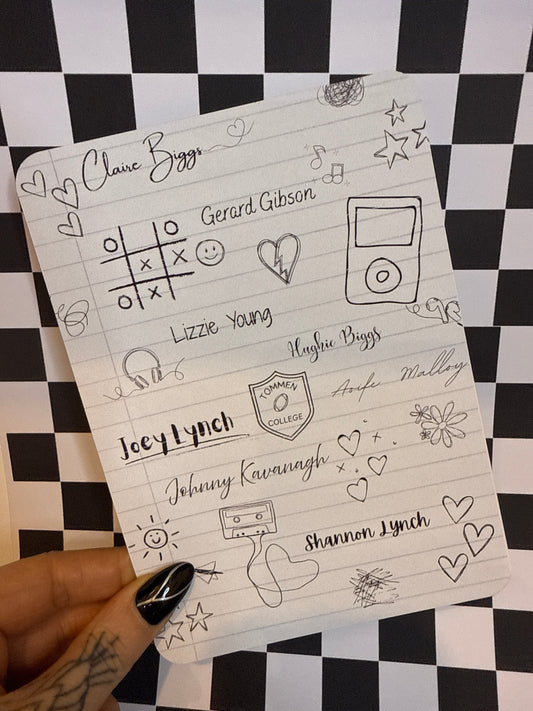 Claire Biggs
Gerard Gibson
O
X X
O X
Lizzie Young
Hughie Biggs
TOMMEN
COLLEGE
Aoife Malloy
Joey Lynch
Johnny Kavanagh
Shannon Lynch